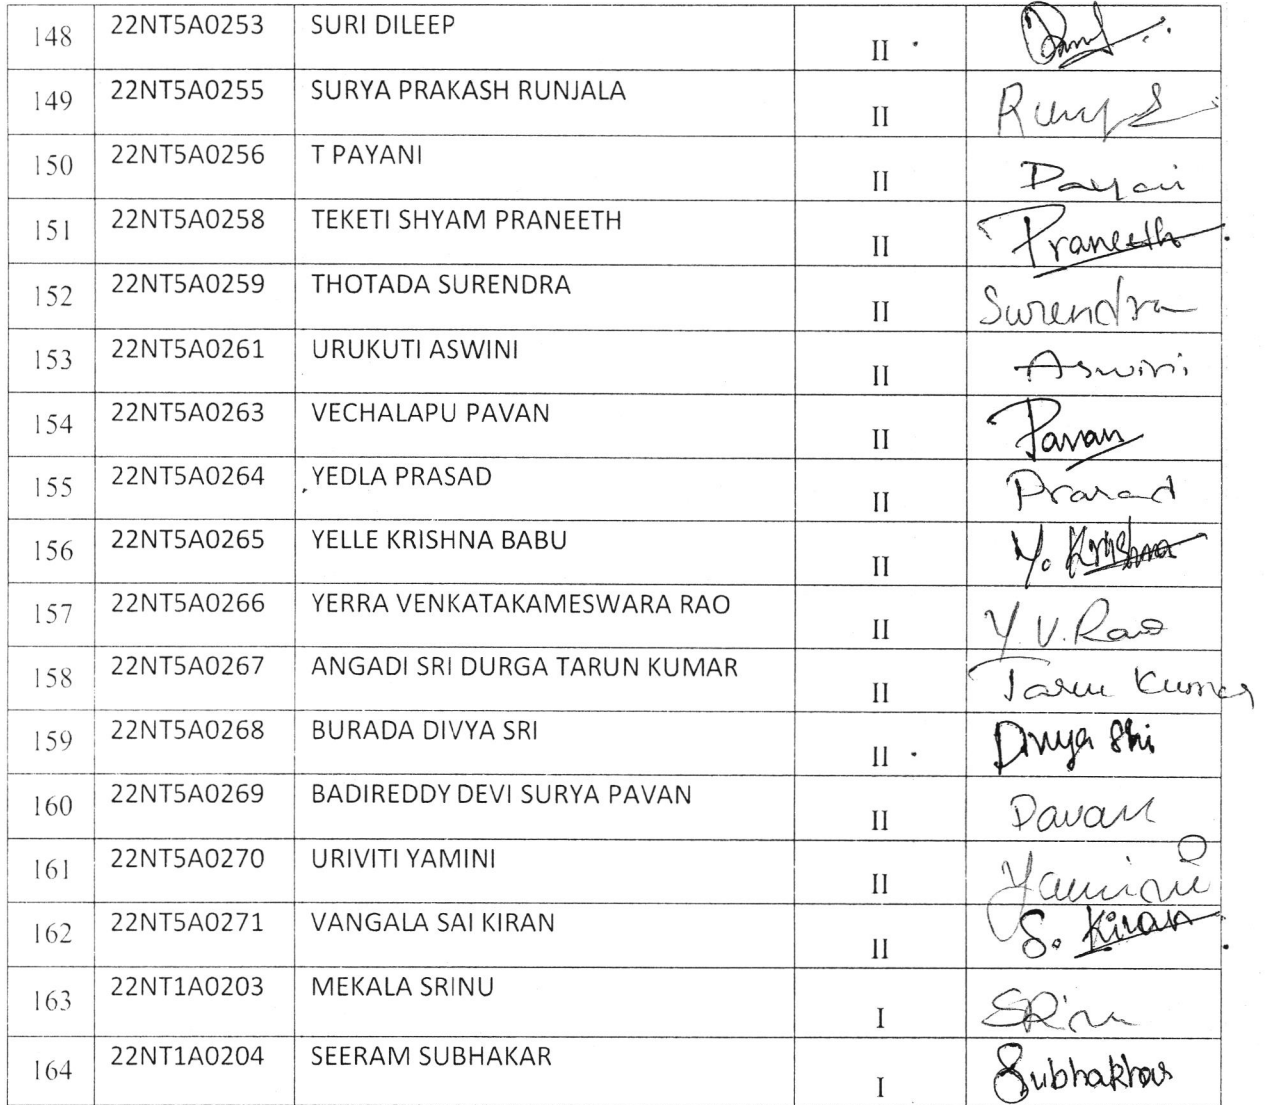 148 22NT5A0253 SURI DILEEP II
149 22NT5A0255 SURYA PRAKASH RUNJALA II
150 22NT5A0256 T PAYANI II
151 22NT5A0258 TEKETI SHYAM PRANEETH II Praneeth
152 22NT5A0259 THOTADA SURENDRA II Surendra
153 22NT5A0261 URUKUTI ASWINI II Aswini
154 22NT5A0263 VECHALAPU PAVAN II Pavan
155 22NT5A0264 YEDLA PRASAD II Prasad
156 22NT5A0265 YELLE KRISHNA BABU II Y. Krishna
157 22NT5A0266 YERRA VENKATAKAMESWARA RAO II Y.V.Rao
158 22NT5A0267 ANGADI SRI DURGA TARUN KUMAR II Tarun Kumar
159 22NT5A0268 BURADA DIVYA SRI II Divya Shi
160 22NT5A0269 BADIREDDY DEVI SURYA PAVAN II Pavan
161 22NT5A0270 URIVITI YAMINI II Yamini
162 22NT5A0271 VANGALA SAI KIRAN II S. Kiran
163 22NT1A0203 MEKALA SRINU I SRinu
164 22NT1A0204 SEERAM SUBHAKAR I Subhakhar